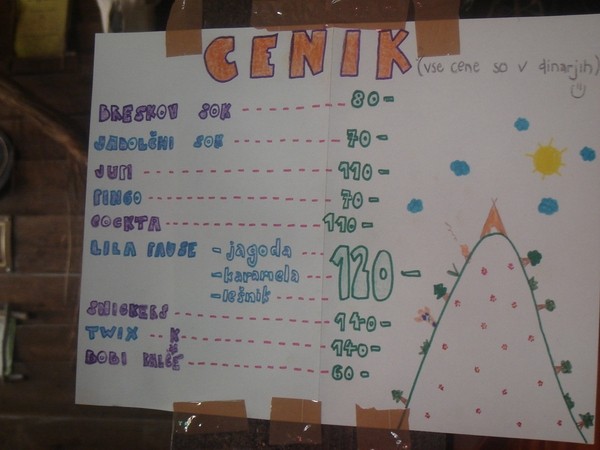 CENIK (vse cene so v dinarjih)
BRESKOV SOK 80-
JABOLČNI SOK 70-
JUPI 110-
PINGO 70-
COCKTA 110-
LILA PAUSE - jagoda
- karamela 120-
- lešnik
SNICKERS 140-
TWIX 140-
BOBI PALČKE 60-